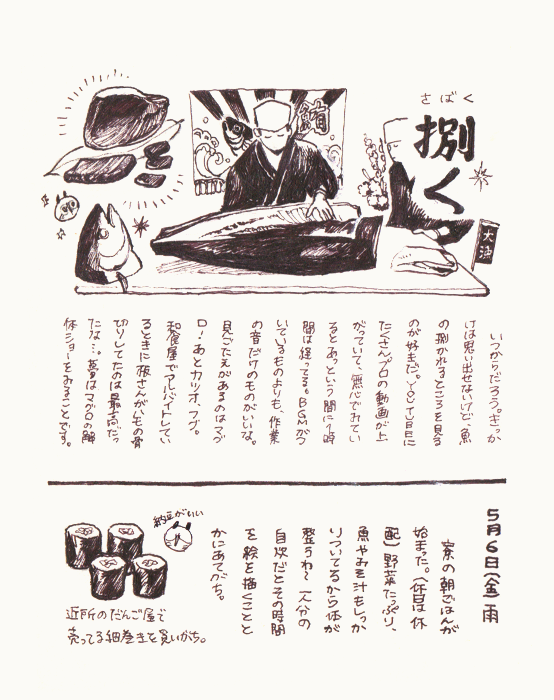 さばく
捌く
鮪
大漁
いつからだろう。きっか
けは思い出せないけど、魚
の捌かれるところを見る
のが好きだ。YOUTUBEに
たくさんプロの動画が上
がっていて、無心でみてい
るとあっという間に1時
間は経ってる。BGMがつ
いているものよりも、作業
の音だけのものがいいな。
見ごたえがあるのはマグ
ロ!あとカツオ、フグ。
和食屋でアルバイトしてい
るときに板さんがハモの骨
切りしてたのは最高だっ
たな…。夢はマグロの解
体ショーをみることです。
5月6日(金)雨
寮の朝ごはんが
始まった。(休日は休
配)野菜たっぷり、
魚やみそ汁もしっか
りついてるから体が
整うわ〜 一人分の
自炊だとその時間
を絵を描くことと
かにあてがち。
納豆がいい
近所のだんご屋で
売ってる細巻きを買いがち。